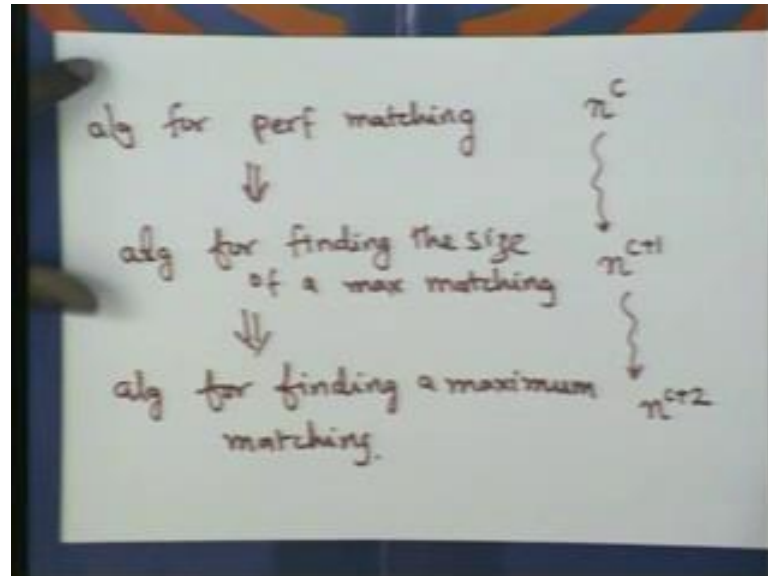 alg for perf matching n^c
⇓
alg for finding the size n^{c+1}
of a max matching
⇓
alg for finding a maximum n^{c+2}
matching.